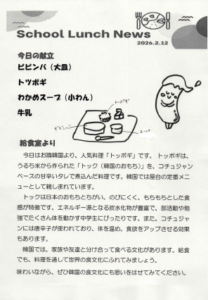 School Lunch News
2026.2.12
今日の献立
ビビンバ(大皿)
トッポギ
わかめスープ(小わん)
牛乳
給食室より
今日はお隣韓国より、人気料理「トッポギ」です。トッポギは、
うるち米から作られた「トック(韓国のおもち)」を、コチュジャン
ベースの甘辛いタレで煮込んだ料理です。韓国では屋台の定番メ
ニューとして親しまれています。
トックは日本のおもちとちがい、のびにくく、もちもちとした食
感が特徴です。エネルギー源となる炭水化物が豊富で、部活動や勉
強でたくさん体を動かす中学生にぴったりです。また、コチュジャ
ンには唐辛子が使われており、体を温め、食欲をアップさせる効果
もあります。
韓国では、家族や友達と分け合って食べる文化があります。給食
でも、料理を通して世界の食文化にふれてみましょう。
味わいながら、ぜひ韓国の食文化にも思いをはせてみてください。